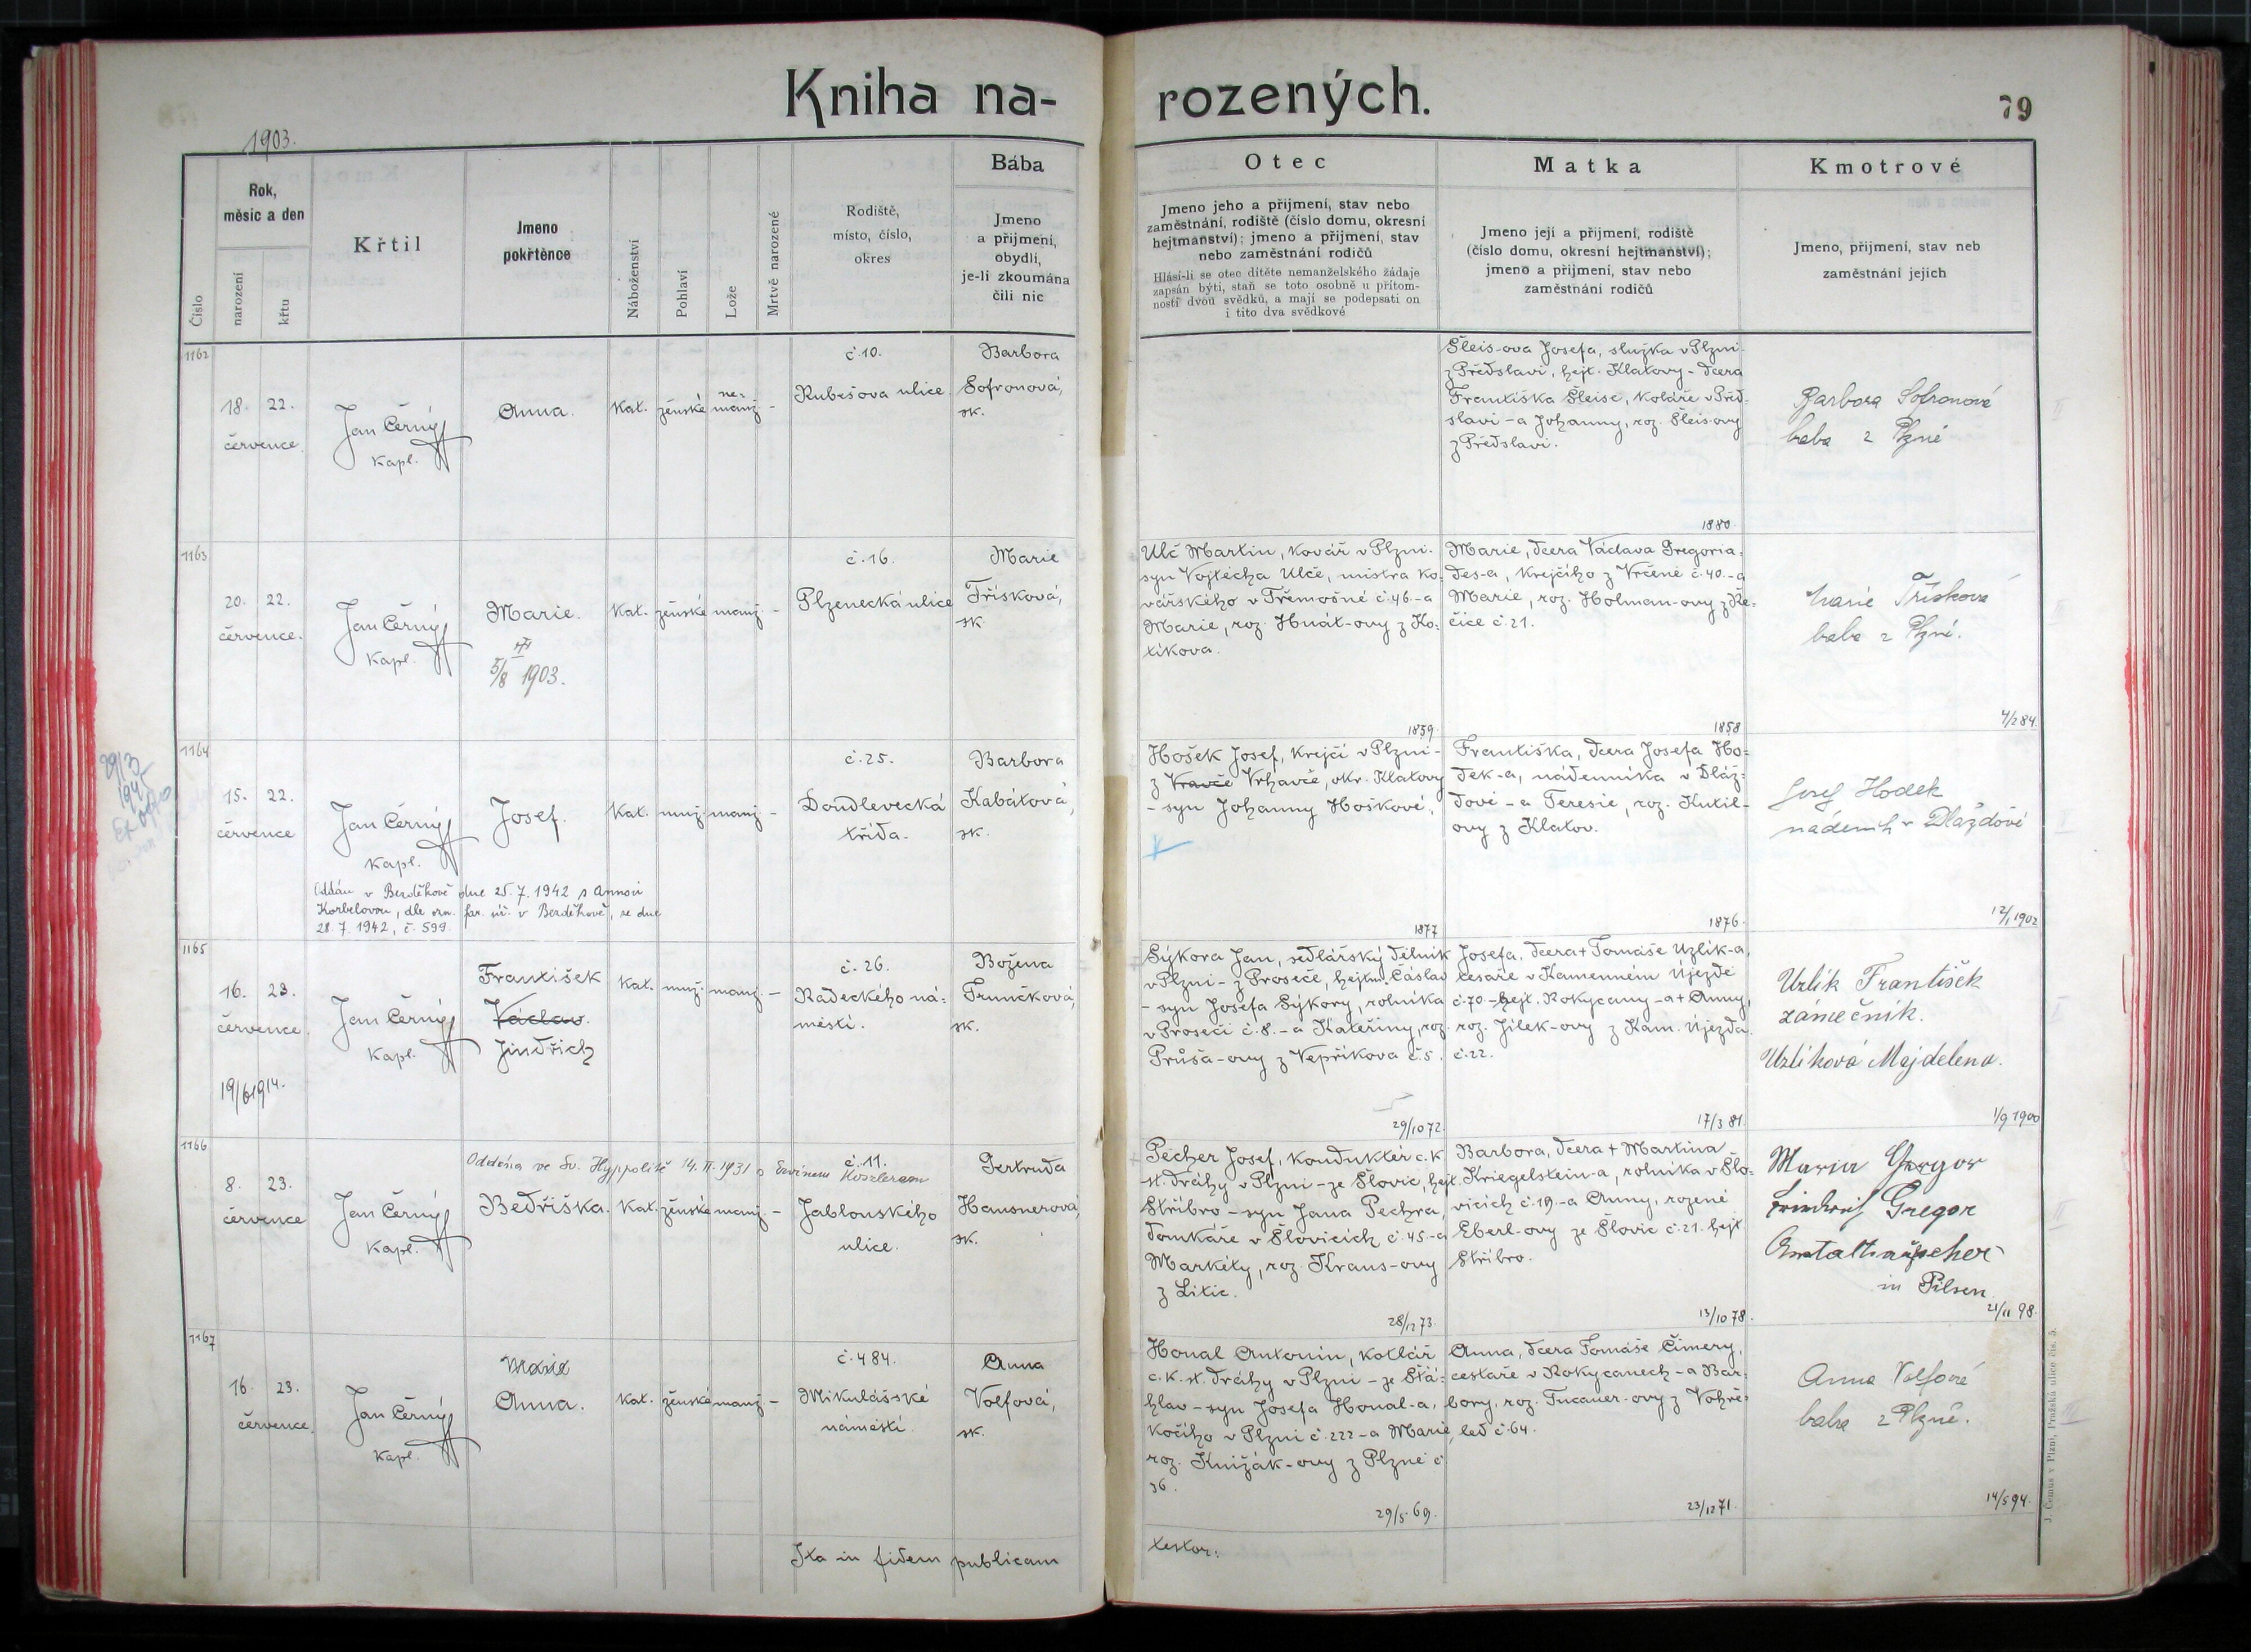 Kniha na-
rozených.
79
1903.
Číslo
Rok,
měsíc a den
narození
křtu
Křtil
Jmeno
pokřtěnce
Náboženství
Pohlaví
Lože
Mrtvě narozené
Rodiště,
místo, číslo,
okres
Bába
Jmeno
a přijmení,
obydlí,
je-li zkoumána
čili nic
Otec
Jmeno jeho a přijmení, stav nebo
zaměstnání, rodiště (číslo domu, okresní
hejtmanství); jmeno a přijmení, stav
nebo zaměstnání rodičů
Hlásí-li se otec dítěte nemanželského žádaje
zapsán býti, staň se toto osobně u přítom-
nosti dvou svědků, a mají se podepsati on
i tito dva svědkové
Matka
Jmeno její a přijmení, rodiště
(číslo domu, okresní hejtmanství);
jmeno a přijmení, stav nebo
zaměstnání rodičů
Kmotrové
Jmeno, přijmení, stav neb
zaměstnání jejich
1162
18. 22.
července
Jan Černý
kapl.
Anna.
kat. ženské
ne-
manž. -
č. 10.
Rubešova ulice.
Barbora
Sofronová,
zk.
Šleis-ova Josefa, služka v Plzni -
z Předslavi, hejt. Klatovy - dcera
Františka Šleise, koláře v Před-
slavi - a Johanny, roz. Šleis-ovy
z Předslavi.
1880.
Barbora Sofronová
baba z Plzně
1163
20. 22.
července.
Jan Černý
kapl.
Marie.
5/8 1903.
kat. ženské manž. -
č. 16.
Plzenecká ulice
Marie
Třísková,
zk.
Ulč Martin, kovář v Plzni -
syn Vojtěcha Ulče, mistra ko-
vářského v Třemošné č. 46. - a
Marie, roz. Hnát-ovy z Ko-
tíkova.
1859.
Marie, dcera Václava Gregoria-
des-a, krejčího z Vrčeně č. 40. - a
Marie, roz. Holman-ovy z Ře-
čice č. 21.
1858
Marie Třísková
baba z Plzně.
4/2 84.
1164
29/3
15. 22.
července
Jan Černý
kapl.
Josef.
kat. muž. manž. -
č. 25.
Doudlevecká
třída.
Barbora
Kabátová,
zk.
Oddán v Bezděkově dne 25. 7. 1942 s Annou
Korbelovou, dle ozn. far. úř. v Bezděkově, ze dne
28. 7. 1942, č. 599.
Hošek Josef, krejčí v Plzni -
z Vravče Vrhavče, okr. Klatovy
- syn Johanny Hoškové.
1877
Františka, dcera Josefa Ho-
dek-a, nádenníka v Dláž-
dové - a Teresie, roz. Kutil-
ovy z Klatov.
1876.
Josef Hodek
nádeník v Dláždově
12/1 1902
1165
16. 23.
července.
19/6 1914.
Jan Černý
kapl.
František
Václav.
Jindřich
kat. muž. manž. -
č. 26.
Radeckého ná-
městí.
Božena
Trunčková,
zk.
Sýkora Jan, sedlářský dělník
v Plzni - z Proseče, hejtm. Čáslav
- syn Josefa Sýkory, rolníka
v Proseči č. 8. - a Kateřiny, roz.
Průša-ovy z Vepříkova č. 5.
29/10 72.
Josefa, dcera + Tomáše Uzlík-a,
cesaře v Kamenném Újezdě
č. 70. - hejt. Rokycany - a + Anny,
roz. Jílek-ovy z Kam. Újezda
č. 22.
17/3 81.
Uzlík František
zámečník.
Uzlíková Majdelena.
1/9 1900
1166
8. 23.
července
Jan Černý
kapl.
Oddána ve Sv. Hyppolitě 14. II. 1931 s Ervínem Koszlerem
Bedřiška.
kat. ženské manž. -
č. 11.
Jablonského
ulice.
Gertruda
Hausnerová,
zk.
Pecher Josef, konduktér c. k.
st. dráhy v Plzni - ze Šlovic, hejt.
Stříbro - syn Jana Pechra,
domkáře v Šlovicích č. 45. - a
Markéty, roz. Kraus-ovy
z Litic.
28/12 73.
Barbora, dcera + Martina
Kriegelstein-a, rolníka v Šlo-
vicích č. 19. - a Anny, rozené
Eberl-ovy ze Šlovic č. 21. hejt.
Stříbro.
13/10 78.
Maria Gregor
Friedrich Gregor
in Pilsen.
21/11 98.
1167
16. 23.
července.
Jan Černý
kapl.
Marie
Anna.
kat. ženské manž. -
č. 484.
Mikulášské
náměstí.
Anna
Volfová,
zk.
Honal Antonín, kotlář
c. k. st. dráhy v Plzni - ze Šťá-
hlav - syn Josefa Honal-a,
kočího v Plzni č. 222 - a Marie,
roz. Knižák-ovy z Plzně č.
36.
29/5 69.
Anna, dcera Tomáše Čimery,
cestaře v Rokycanech - a Bar-
bory, roz. Tucauer-ovy z Vohře-
led č. 64.
23/12 71.
Anna Volfová
baba z Plzně.
14/5 94.
Ita in fidem publicam
testor:
J. Čemus v Plzni, Pražská ulice čís. 5.